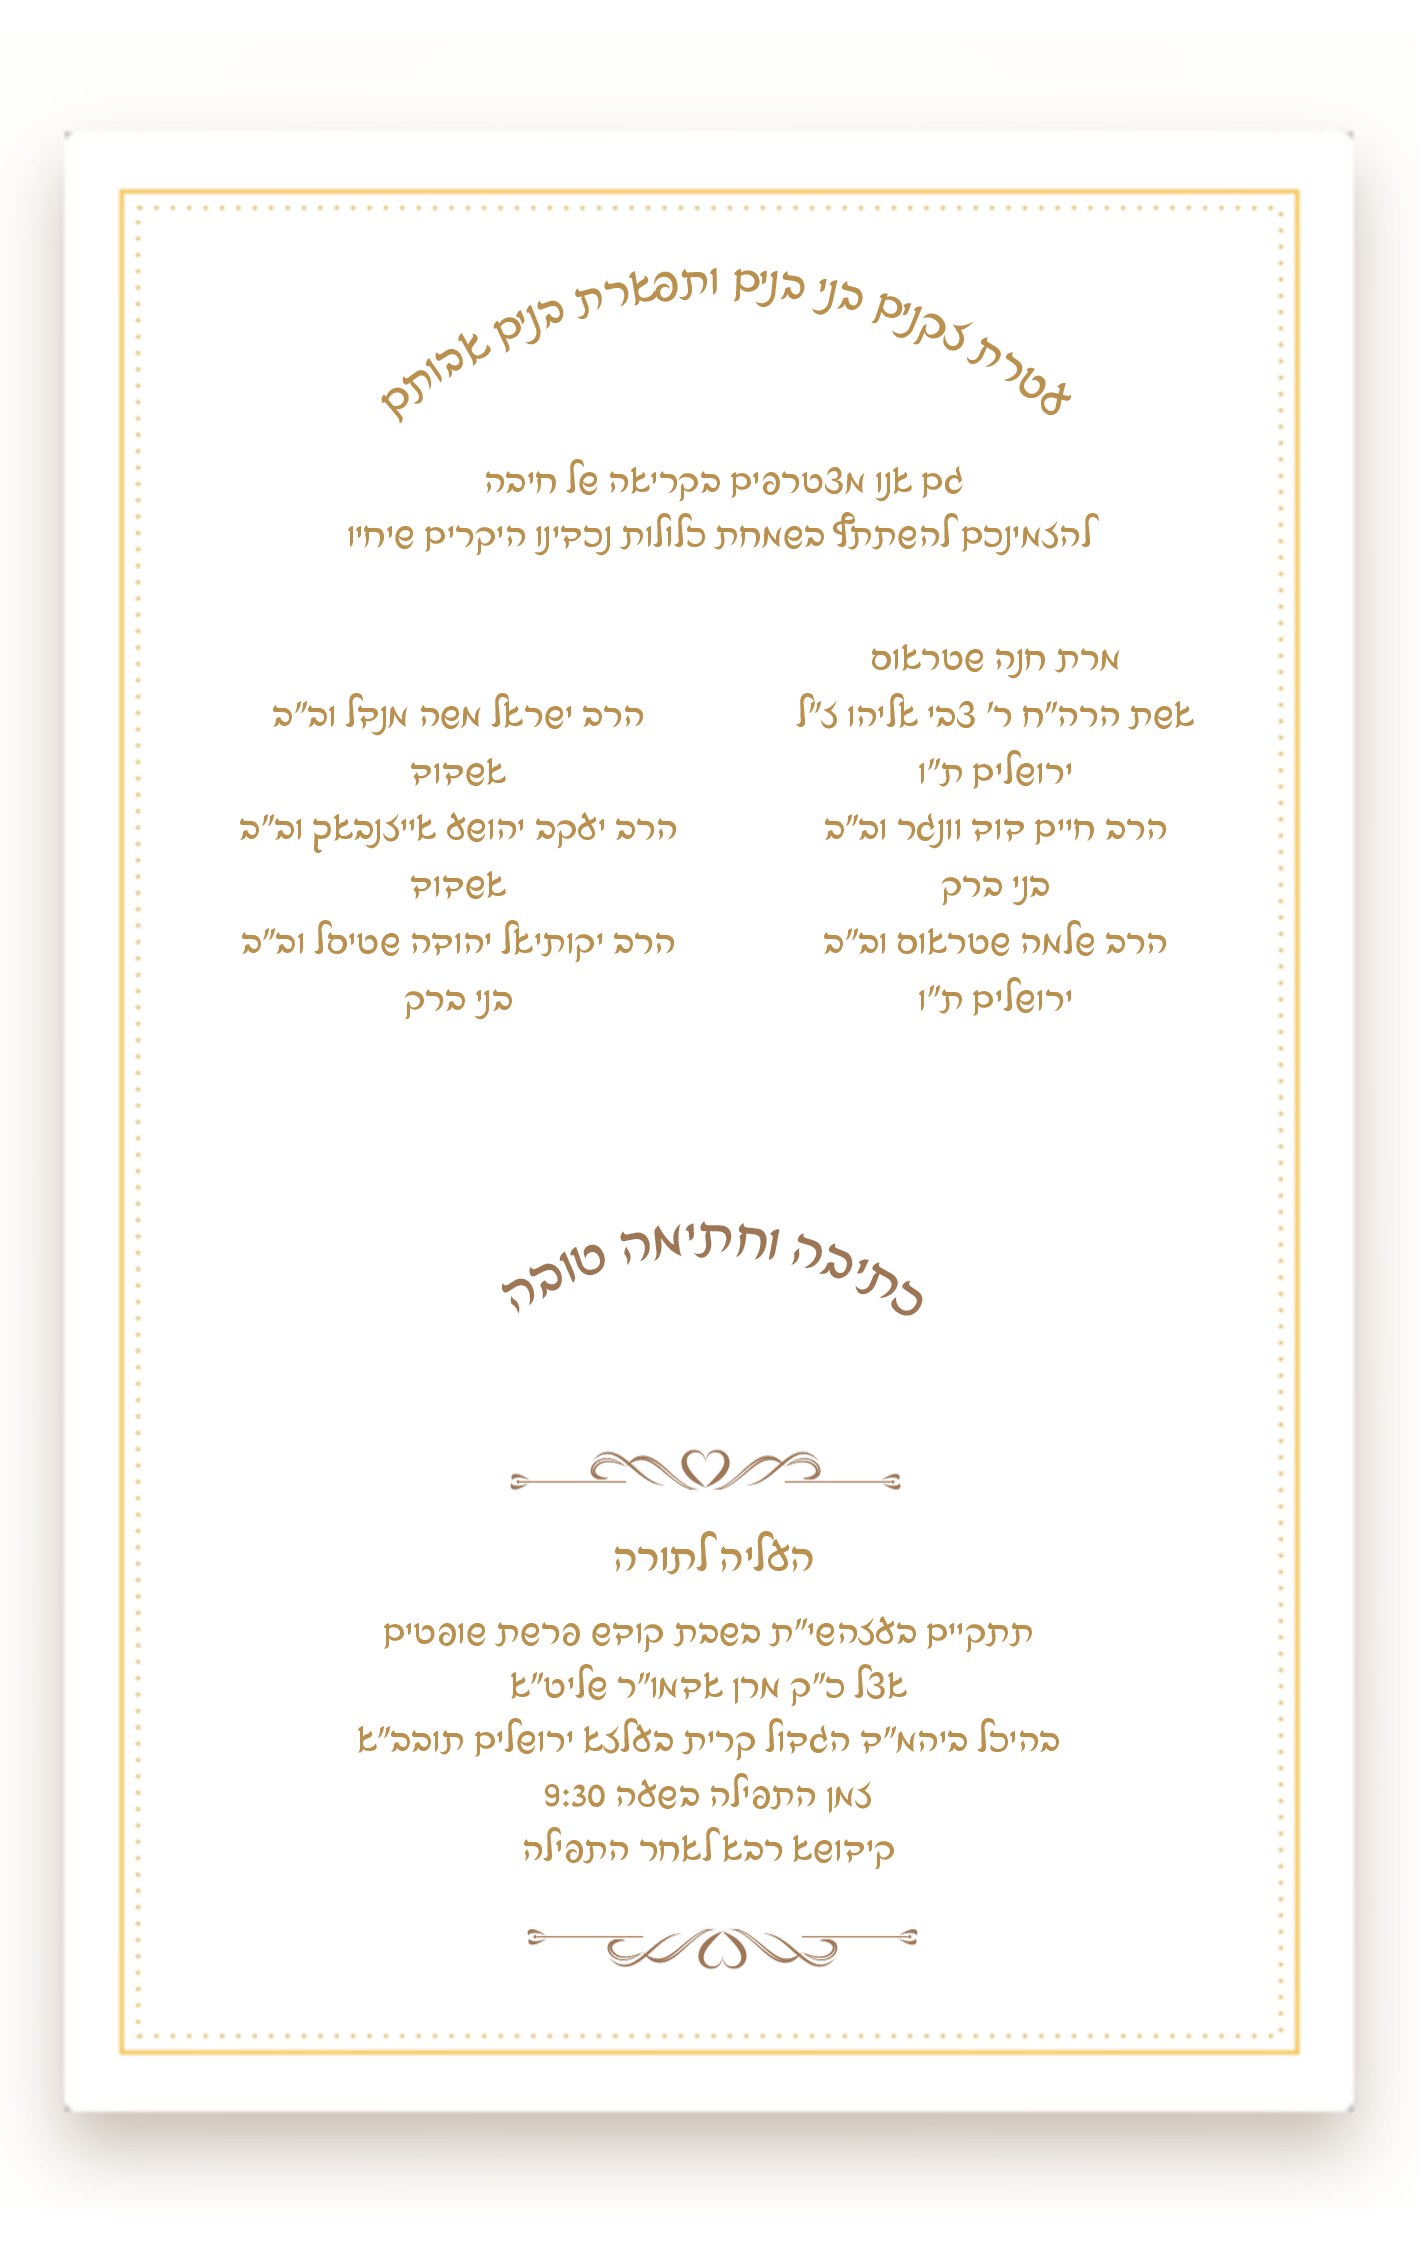 עטרת זקנים בני בנים ותפארת בנים אבותם
גם אנו מצטרפים בקריאה של חיבה
להזמינכם להשתתף בשמחת כלולות נכדינו היקרים שיחיו
מרת חנה שטראוס
אשת הרה"ח ר' צבי אליהו ז"ל
ירושלים ת"ו
הרב חיים דוד וונגר וב"ב
בני ברק
הרב שלמה שטראוס וב"ב
ירושלים ת"ו
הרב ישראל משה מנדל וב"ב
אשדוד
הרב יעקב יהושע אייזנבאך וב"ב
אשדוד
הרב יקותיאל יהודה שטיסל וב"ב
בני ברק
כתיבה וחתימה טובה
העליה לתורה
תתקיים בעזהשי"ת בשבת קודש פרשת שופטים
אצל כ"ק מרן אדמו"ר שליט"א
בהיכל ביהמ"ד הגדול קרית בעלזא ירושלים תובב"א
זמן התפילה בשעה 9:30
קידושא רבא לאחר התפילה